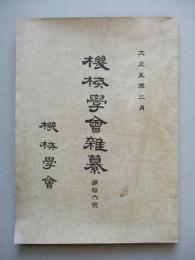 大正五年二月
機械學會雜纂
第拾六號
機械學會